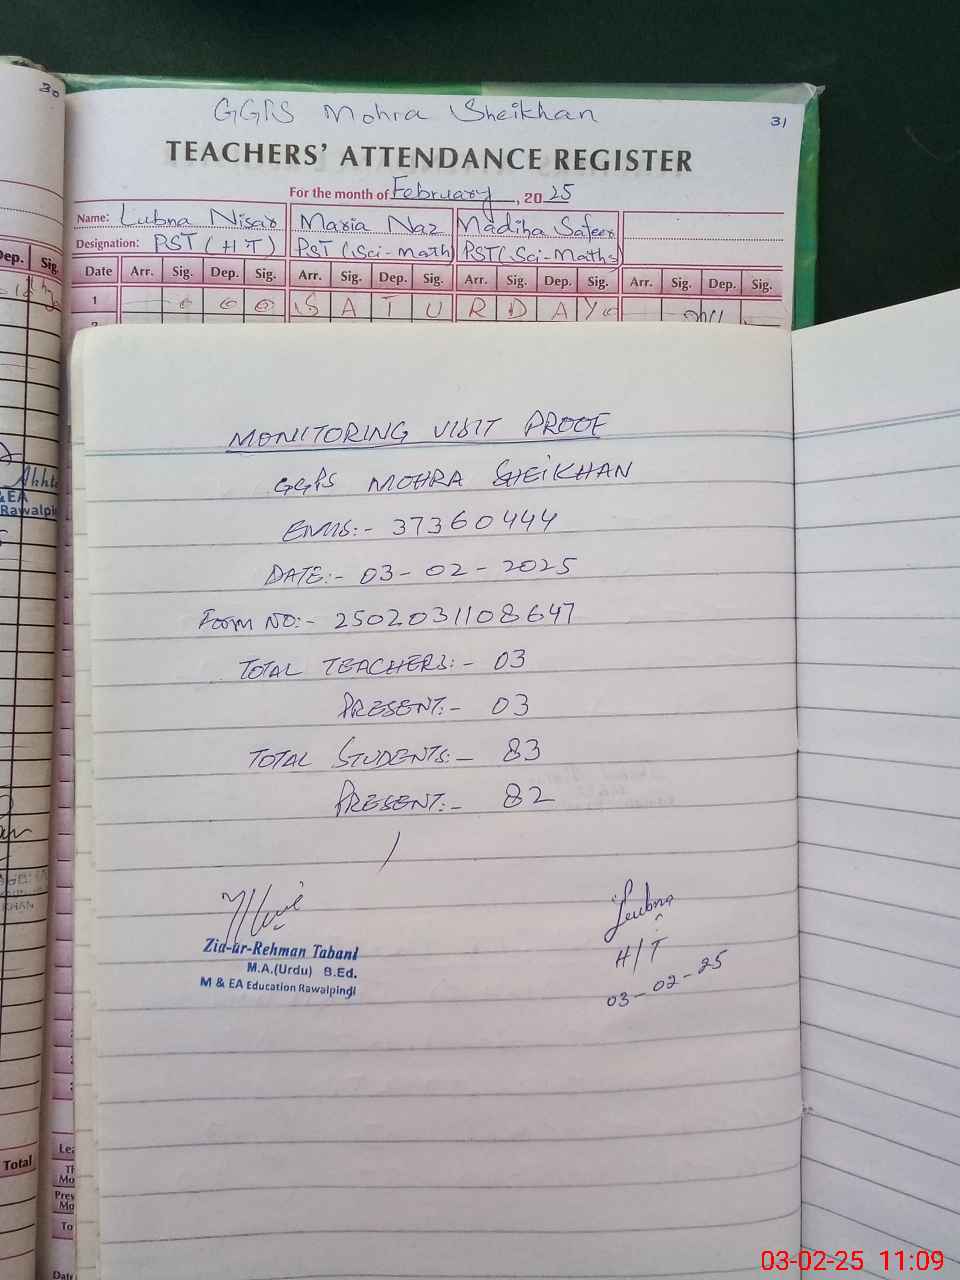 30
GGPS Mohra Sheikhan
31
TEACHERS' ATTENDANCE REGISTER
For the month of February, 2025
Name: Lubna Nisar Maria Naz Madiha Safeer
Designation: PST (HT) PST (Sci-math) PST (Sci-Maths)
Dep. Sig. Date Arr. Sig. Dep. Sig. Arr. Sig. Dep. Sig. Arr. Sig. Dep. Sig. Arr. Sig. Dep. Sig.
1 S A T U R D A Y
MONITORING VISIT PROOF
GGPS MOHRA SHEIKHAN
EMIS:- 37360444
DATE:- 03-02-2025
Form NO:- 2502031108647
TOTAL TEACHERS:- 03
PRESENT:- 03
TOTAL STUDENTS:- 83
PRESENT:- 82
Zia-ur-Rehman Tabani
M.A.(Urdu) B.Ed.
M & EA Education Rawalpindi
Lubna
H/T
03-02-25
Total
03-02-25 11:09